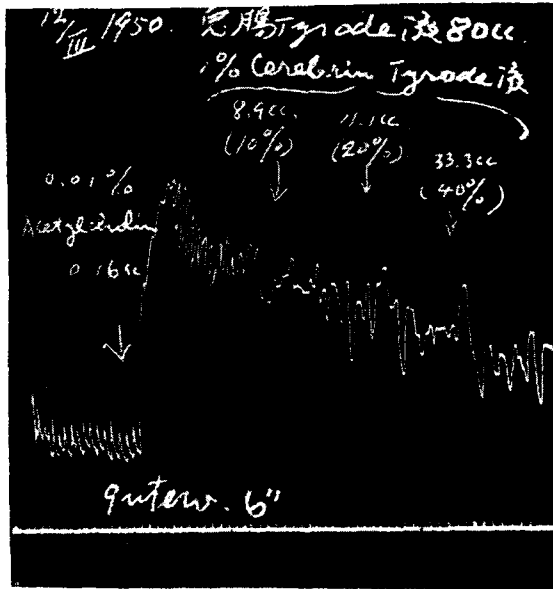 12/III 1950. 兎腸Tyrode液80cc.
1% Cerebrin Tyrode液
8.9cc.
(10%)
11.1cc
(20%)
33.3cc
(40%)
0.01%
Acetylcholin
0.16cc
Interv. 6"